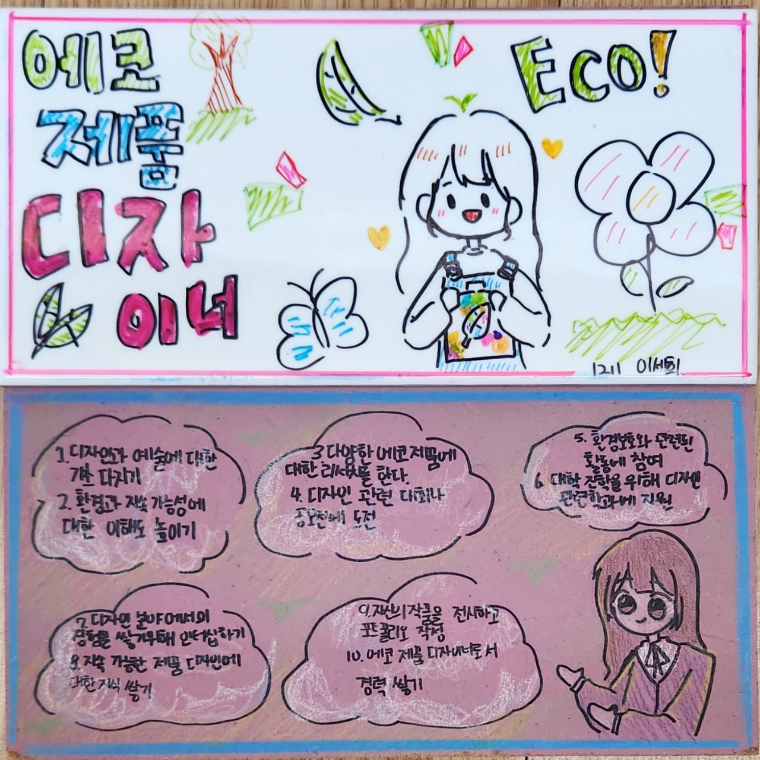 에코
제품
디자
이너
Eco!
1211 이세희
1. 디자인과 예술에 대한
기초 다지기
2. 환경과 지속가능성에
대한 이해도 높이기
3 다양한 에코제품에
대한 리서치를 한다.
4. 디자인 관련 대회나
공모전에 도전
5. 환경보호와 관련된
활동에 참여
6. 대학 진학을 위해 디자인
관련학과에 지원
7. 디자인 분야에서의
경험을 쌓기위해 인턴십하기
8. 지속 가능한 제품 디자인에
대한 지식 쌓기
9. 자신의 작품을 전시하고
포트폴리오 작성
10. 에코 제품 디자이너로서
경력 쌓기